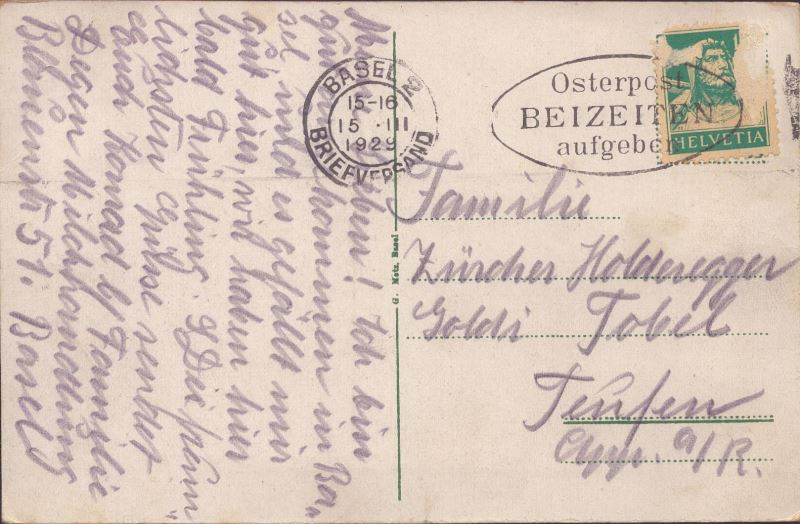 Meine Lieben! Ich bin
gut angekommen in Ba„
sel und es gefällt mir
gut hier, wir haben hier
bald Frühling. Die herz„
lichsten Grüsse sendet
euch Konrad b/ Familie
Degen Milchhandlung
Blumenstr 51. Basel
BASEL 2
15-16
15.III
1929
BRIEFVERSAND
Osterpost
BEIZEITEN
aufgeben
HELVETIA
G. Metz, Basel
Familie
Zürcher Holderegger
Goldi Tobel
Teufen
App. a/R.